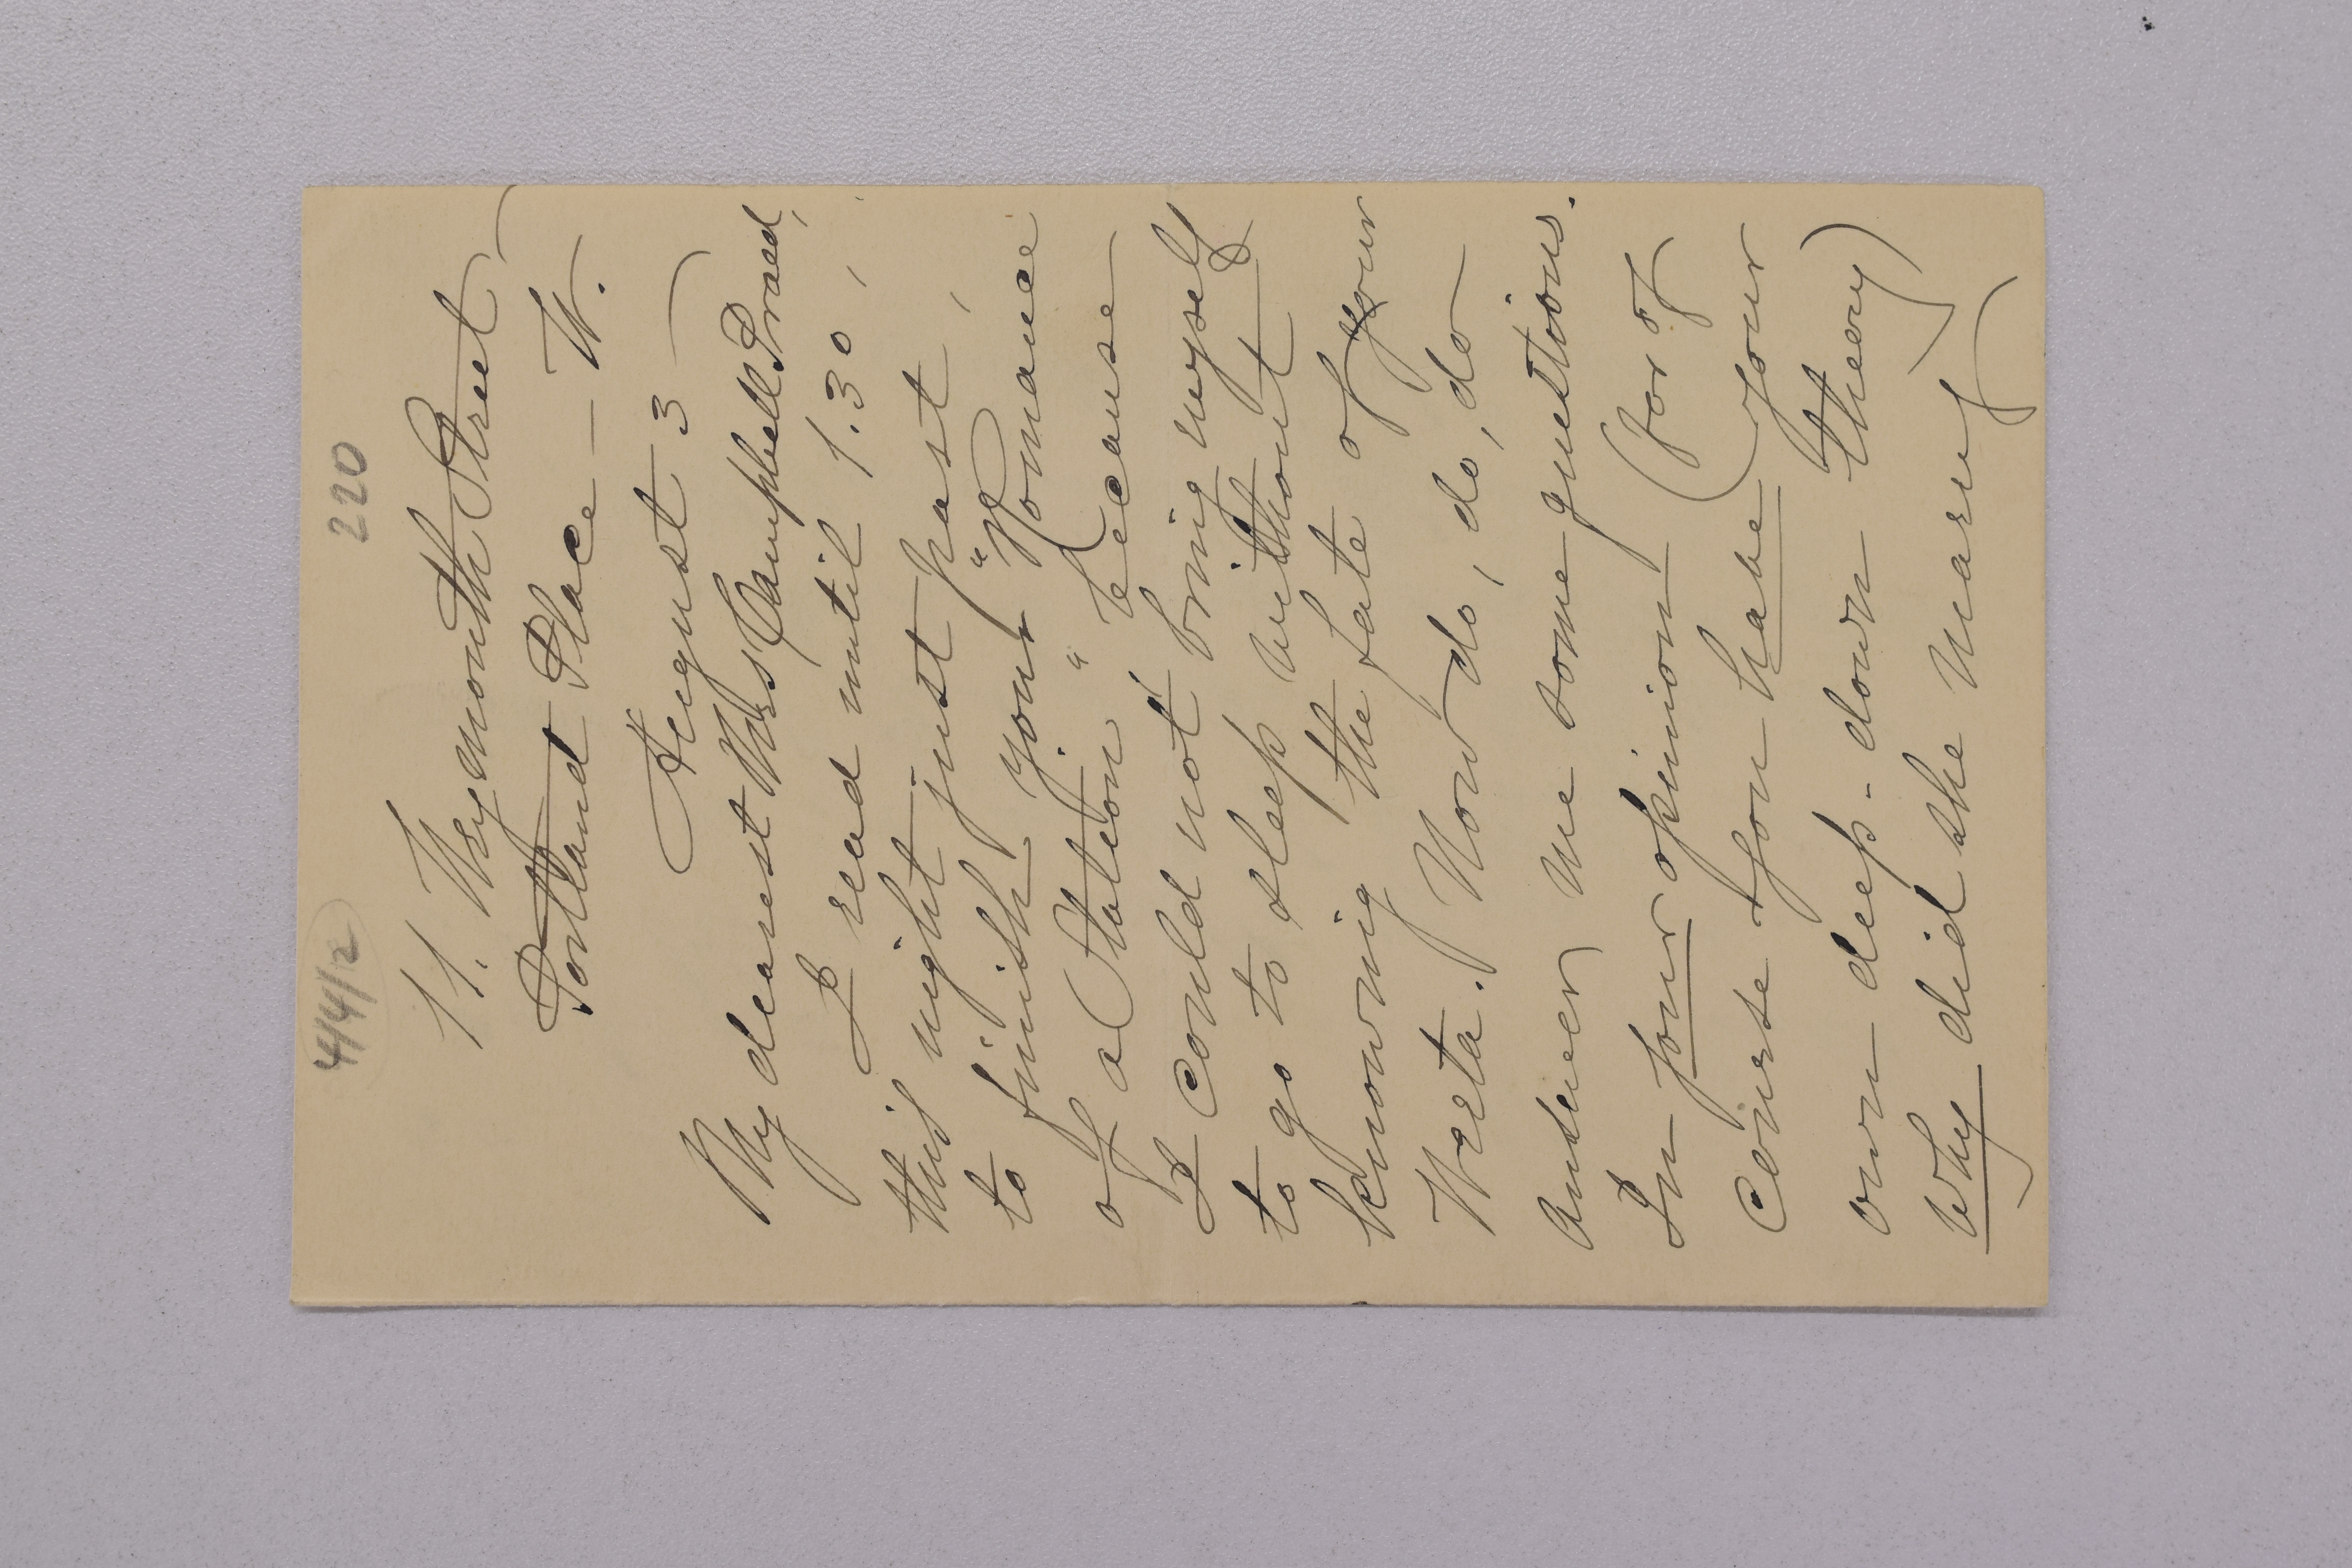 44/12 220
11. Weymouth Street
Portland Place - W.
August 3
My dearest Mrs Campbell Praed,
I read until 1.30,
this night just past,
to finish your "Romance
of a Station" because
I could not bring myself
to go to sleep without
knowing the fate of your
Weeta. Now do, do, do
answer me some questions.
In your opinion (for of
course you have your
own deep-down theory)
why did she marry